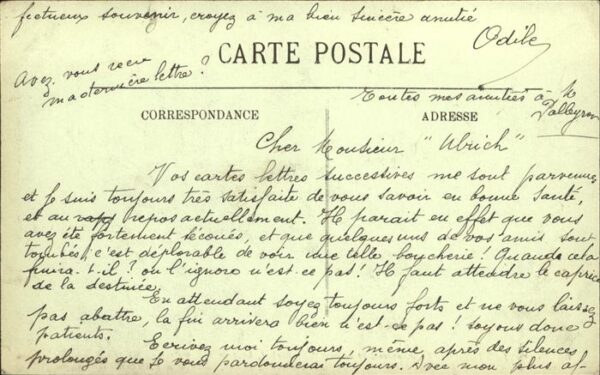 fectueux souvenir, croyez à ma bien sincère amitié
Odile
CARTE POSTALE
Avez vous recu
ma dernière lettre ?
Toutes mes amitiés à M
Dalleyron
CORRESPONDANCE
ADRESSE
Cher Monsieur "Ulrich"
Vos cartes lettres successives me sont parvenues
et je suis toujours très satisfaite de vous savoir en bonne santé,
et au repos actuellement. Il parait en effet que vous
avez été fortement secoués, et que quelques uns de vos amis sont
tombés, c'est déplorable de voir une telle boucherie ! Quand cela
finira-t-il ? on l'ignore n'est-ce pas ! Il faut attendre le caprice
de la destinée.
En attendant soyez toujours forts et ne vous laissez
pas abattre, la fin arrivera bien n'est-ce pas ! soyons donc
patients.
Ecrivez moi toujours, même après des silences
prolongés que je vous pardonnerai toujours. Avec mon plus af-